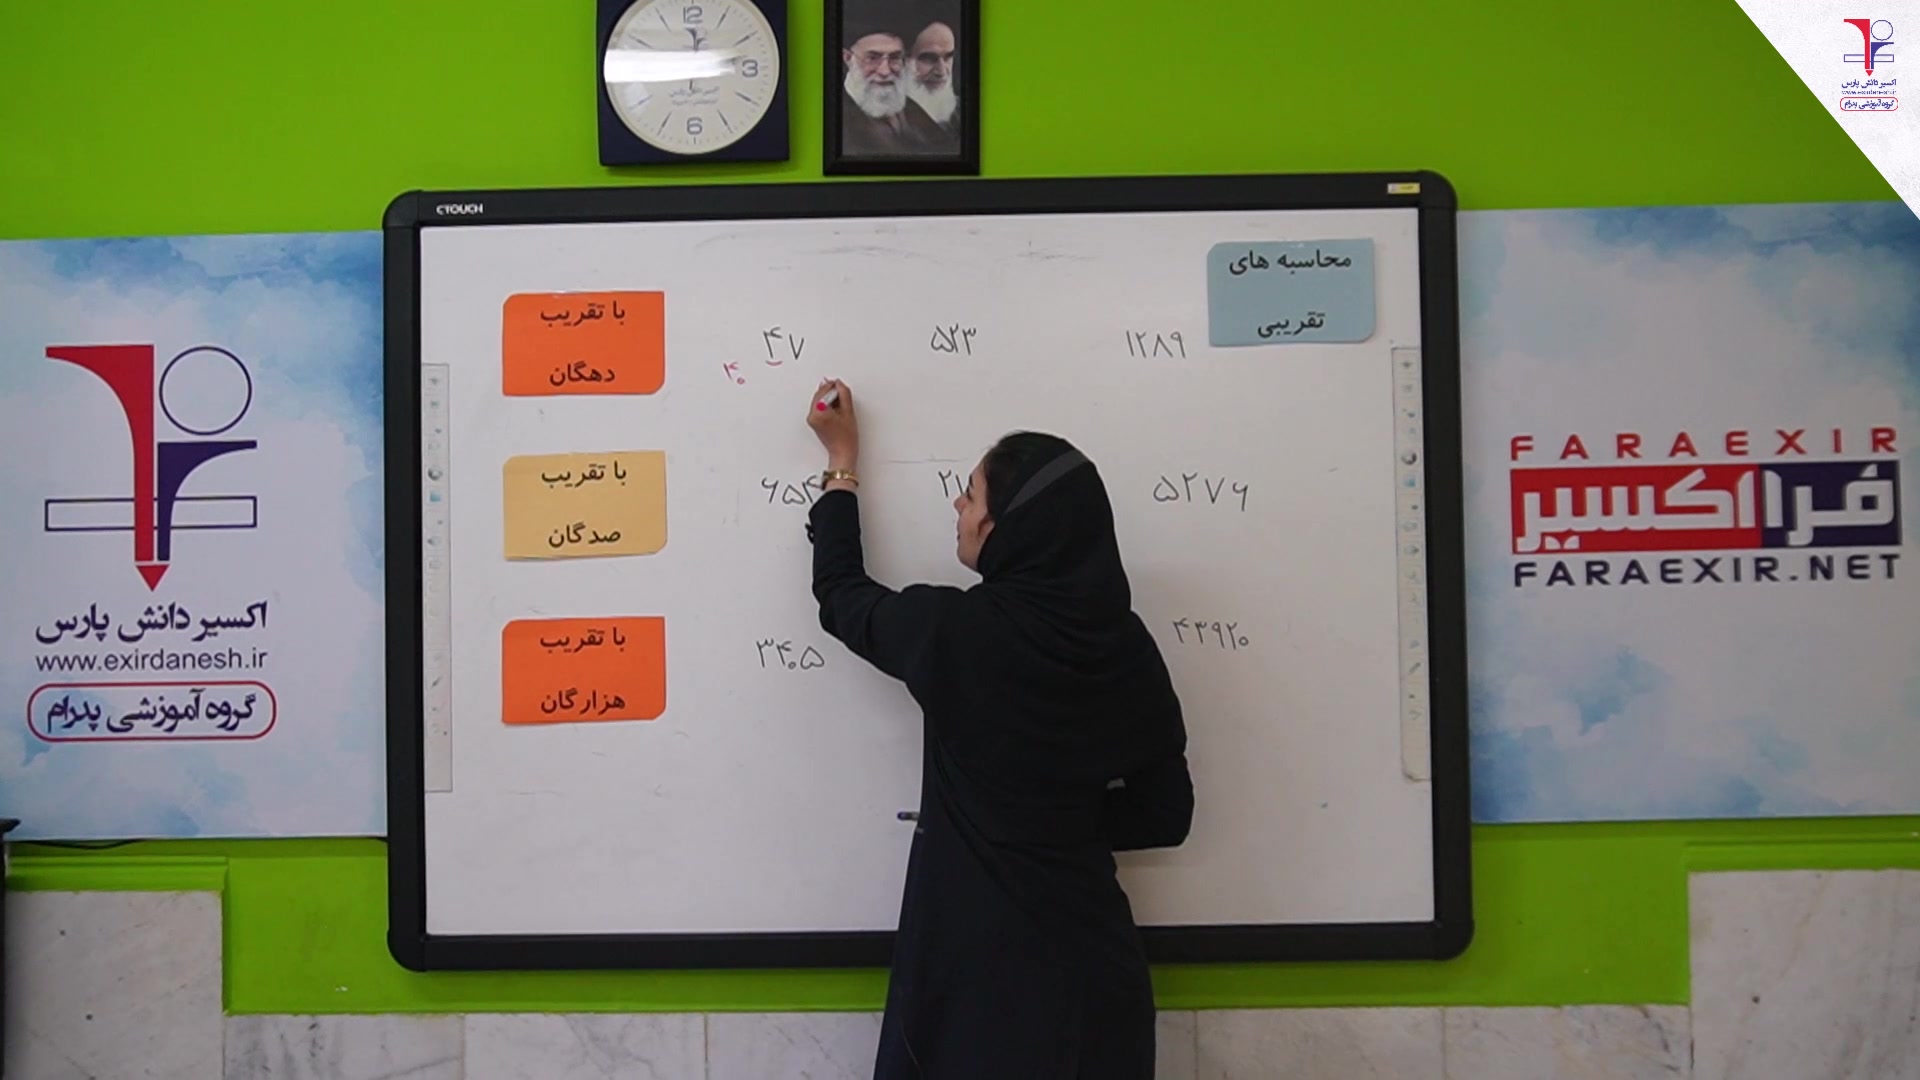 12
3
6
اکسیر دانش پارس
گروه آموزشی پدرام
CTOUCH
محاسبه های
تقریبی
با تقریب
دهگان
۴۷
۵۲۳
۱۲۸۹
۴۰
با تقریب
صدگان
۶۵۴
۵۲۷۶
با تقریب
هزارگان
۳۴۰۵
۴۳۹۲۰
اکسیر دانش پارس
www.exirdanesh.ir
گروه آموزشی پدرام
FARAEXIR
فرااکسیر
FARAEXIR.NET